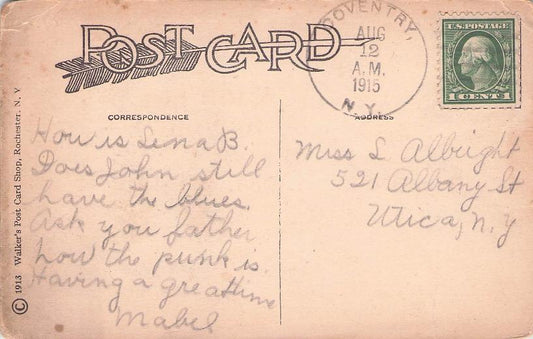 POST CARD
COVENTRY,
AUG
12
A.M.
1915
N.Y.
U.S. POSTAGE
1 CENT 1
CORRESPONDENCE
ADDRESS
How is Lena B.
Does John still
have the blues.
Ask you father
how the punk is.
Having a great time
Mabel
Miss L Albright
521 Albany St
Utica, N.Y
© 1913 Walker's Post Card Shop, Rochester, N. Y